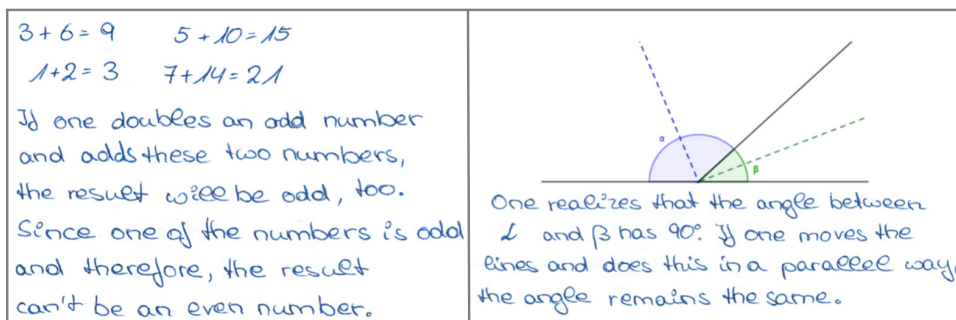 3 + 6 = 9 5 + 10 = 15
1 + 2 = 3 7 + 14 = 21
If one doubles an odd number
and adds these two numbers,
the result will be odd, too.
Since one of the numbers is odd
and therefore, the result
can't be an even number.
α
β
One realizes that the angle between
α and β has 90°. If one moves the
lines and does this in a parallel way,
the angle remains the same.